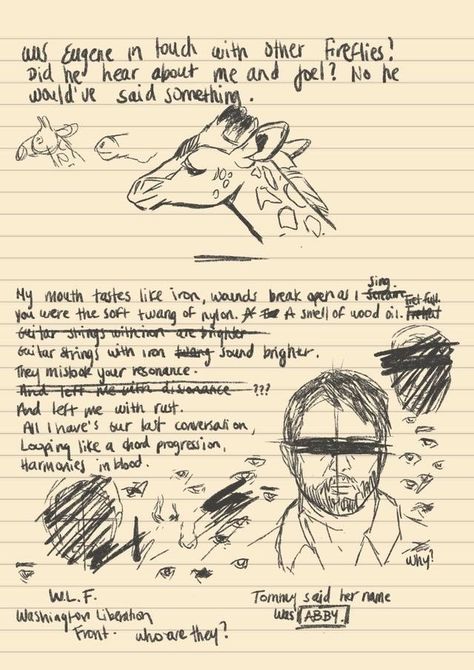 was Eugene in touch with other fireflies?
Did he hear about me and Joel? No he
would've said something.
sing.
My mouth tastes like iron, wounds break open as I scream. Fret full.
you were the soft twang of nylon. A smell of wood oil. Fretful
Guitar strings with iron are brighter
Guitar strings with iron twang sound brighter.
They mistook your resonance.
And left me with dissonance ???
And left me with rust.
All I have's our last conversation,
Looping like a chord progression,
Harmonies in blood.
why?
W.L.F.
Washington Liberation
Front. who are they?
Tommy said her name
was ABBY.